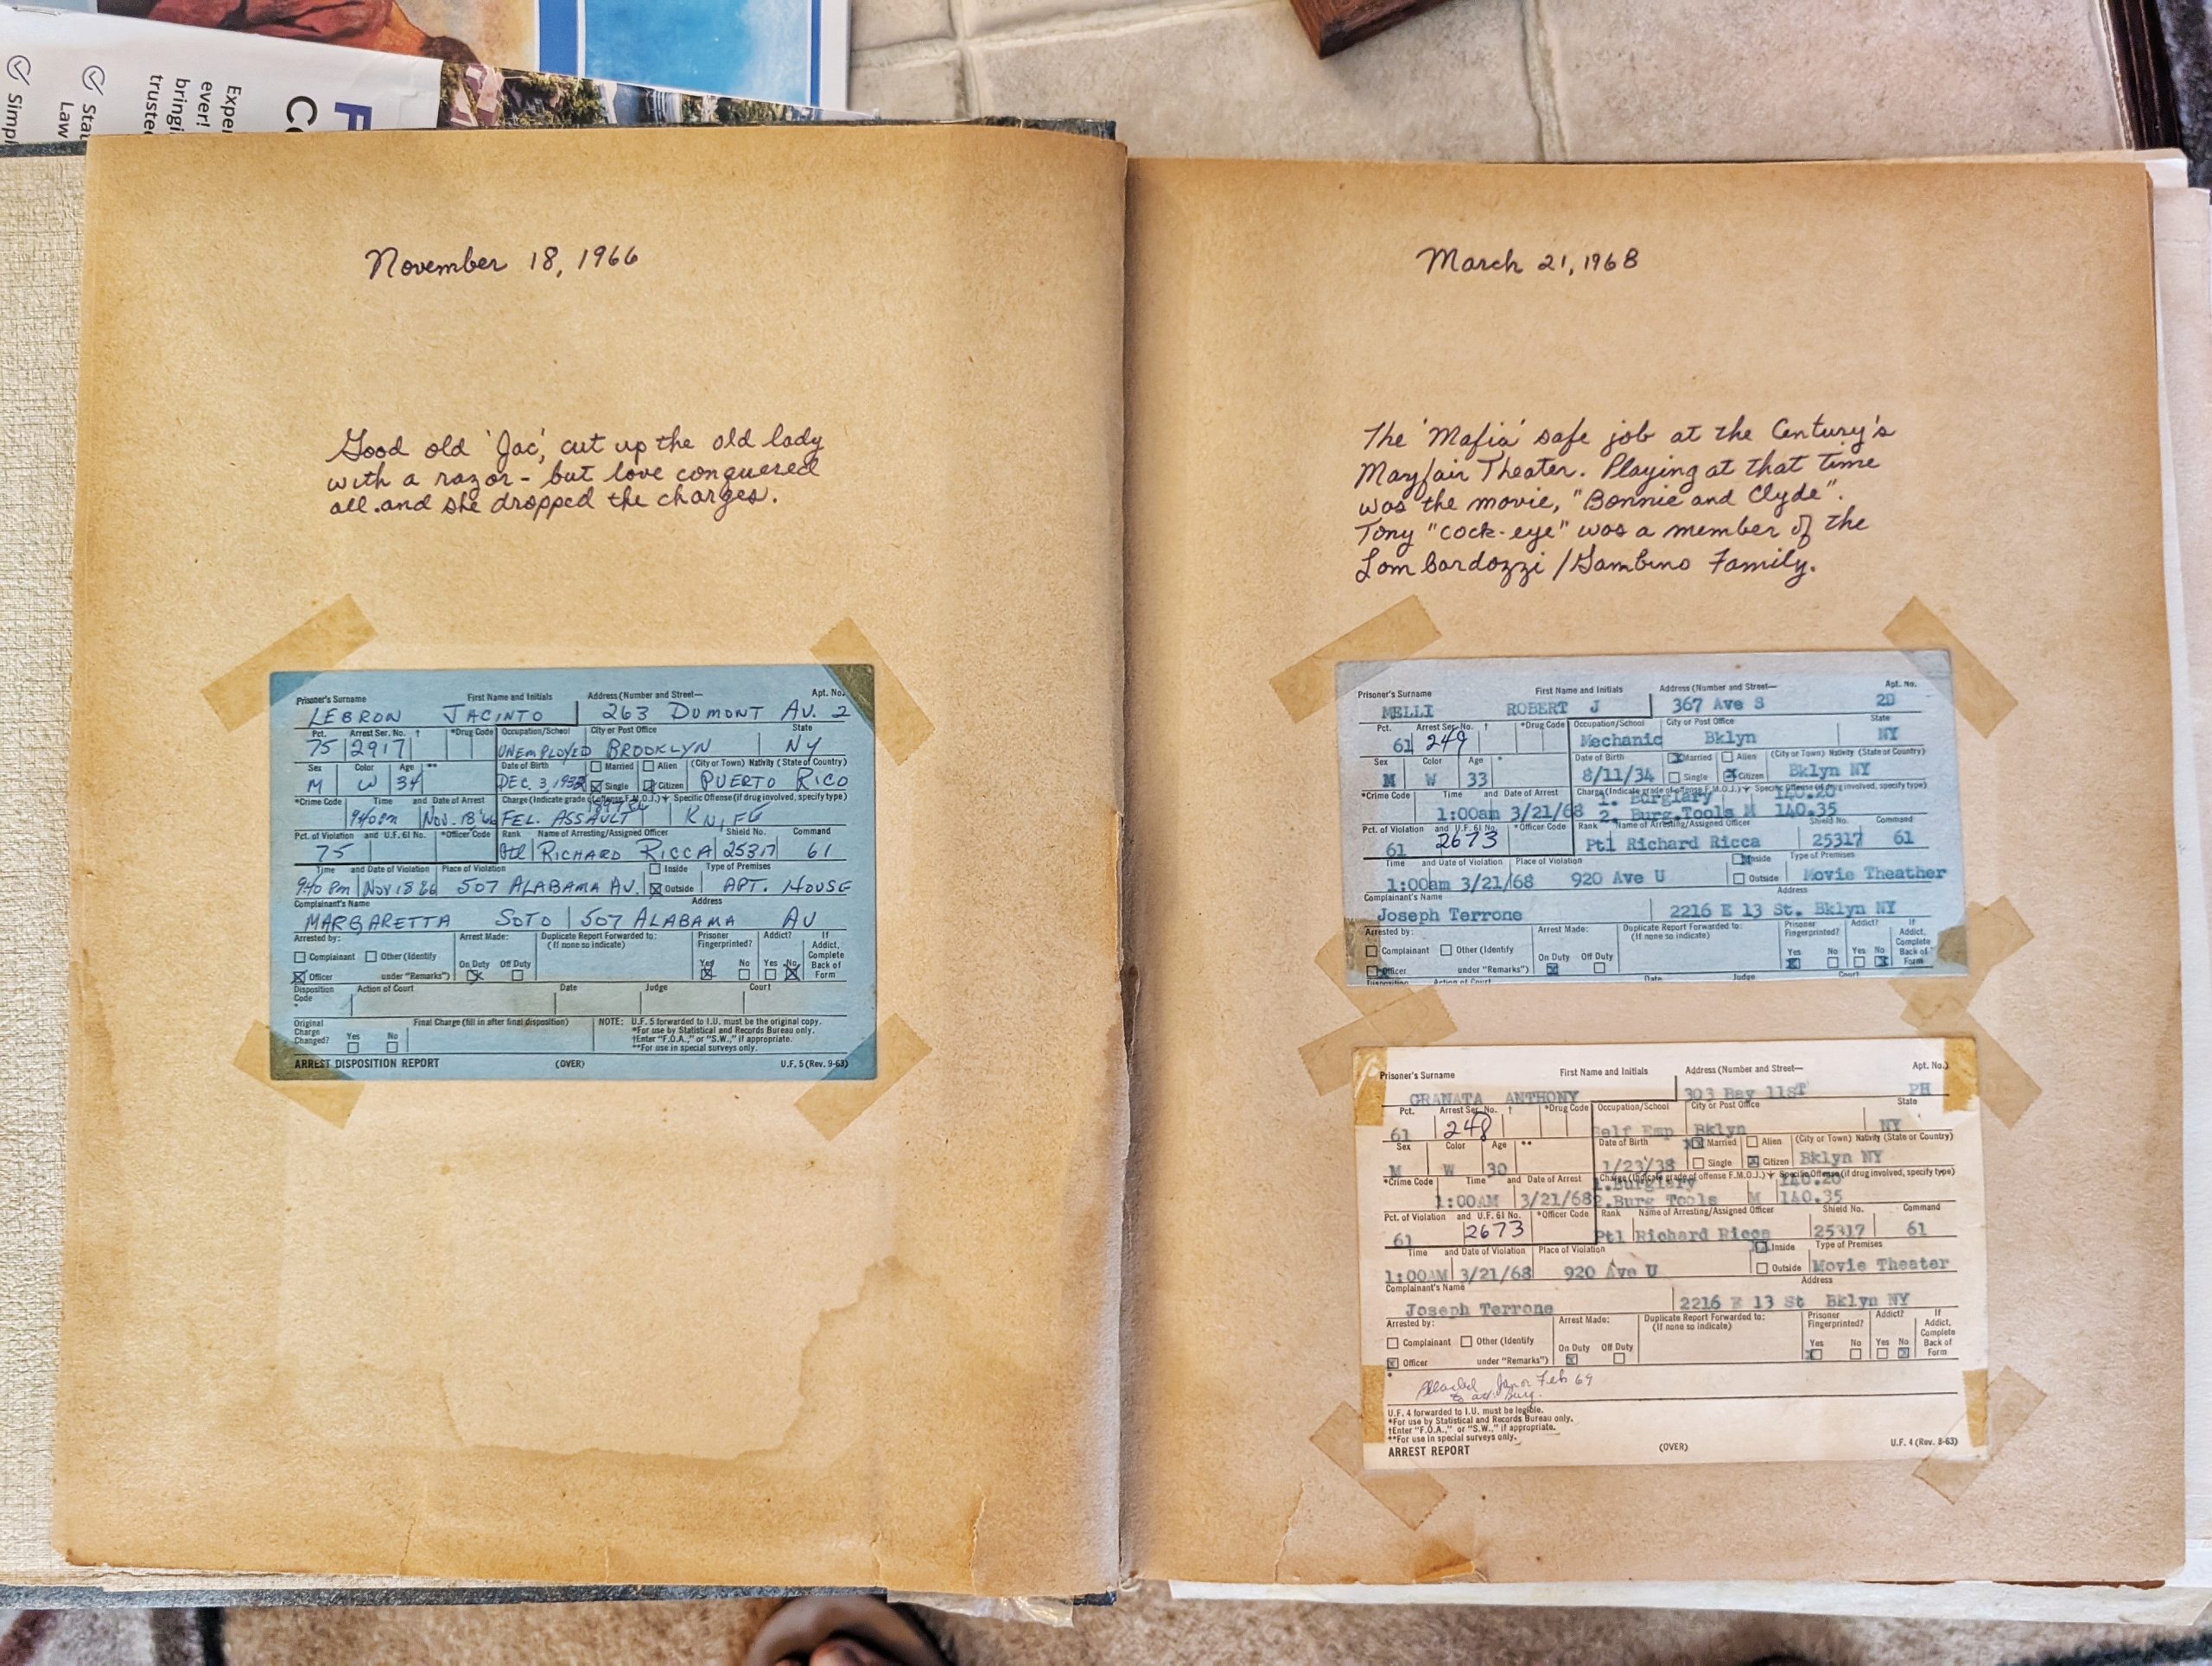 Exper
ever!
bringi
trusted
Sta
Law
Simpl
F
C
November 18, 1966
Good old 'Jac', cut up the old lady
with a razor - but love conquered
all. and she dropped the charges.
Prisoner's Surname First Name and Initials Address (Number and Street— Apt. No.
LEBRON JACINTO 263 DUMONT AV. 2
Pct. Arrest Ser. No. † *Drug Code Occupation/School City or Post Office State
75 2917 UNEMPLOYED BROOKLYN NY
Sex Color Age ** Date of Birth Married Alien (City or Town) Nativity (State of Country)
M W 34 DEC. 3, 1932 Single Citizen PUERTO RICO
*Crime Code Time and Date of Arrest Charge (Indicate grade of offense F.M.O.J.) Specific Offense (if drug involved, specify type)
940pm Nov. 18 '66 FEL. ASSAULT KNIFE
Pct. of Violation and U.F. 61 No. *Officer Code Rank Name of Arresting/Assigned Officer Shield No. Command
75 Ptl RICHARD RICCA 25317 61
Time and Date of Violation Place of Violation Inside Type of Premises
940 Pm Nov 18 66 507 ALABAMA AV. Outside APT. HOUSE
Complainant's Name Address
MARGARETTA SOTO 507 ALABAMA AV
Arrested by: Arrest Made: Duplicate Report Forwarded to: Prisoner Addict? If
(If none so indicate) Fingerprinted? Addict,
Complainant Other (Identify On Duty Off Duty Yes No Yes No Complete
Officer under "Remarks") Back of
Form
Disposition Action of Court Date Judge Court
Code
*
Original Final Charge (fill in after final disposition) NOTE: U.F. 5 forwarded to I.U. must be the original copy.
Charge Yes No *For use by Statistical and Records Bureau only.
Changed? †Enter "F.O.A.," or "S.W.," if appropriate.
**For use in special surveys only.
ARREST DISPOSITION REPORT (OVER) U.F. 5 (Rev. 9-63)
March 21, 1968
The 'Mafia' safe job at the Century's
Mayfair Theater. Playing at that time
was the movie, "Bonnie and Clyde".
Tony "cock-eye" was a member of the
Lombardozzi / Gambino Family.
Prisoner's Surname First Name and Initials Address (Number and Street— Apt. No.
MELLI ROBERT J 367 Ave S 2D
Pct. Arrest Ser. No. † *Drug Code Occupation/School City or Post Office State
61 249 Mechanic Bklyn NY
Sex Color Age * Date of Birth Married Alien (City or Town) Nativity (State or Country)
M W 33 8/11/34 Single Citizen Bklyn NY
*Crime Code Time and Date of Arrest Charge (Indicate grade of offense F.M.O.J.) Specific Offense (if drug involved, specify type)
1. Burglary 140.20
1:00am 3/21/68 2. Burg.Tools M 140.35
Pct. of Violation and U.F. 61 No. *Officer Code Rank Name of Arresting/Assigned Officer Shield No. Command
61 2673 Ptl Richard Ricca 25317 61
Time and Date of Violation Place of Violation Inside Type of Premises
1:00am 3/21/68 920 Ave U Outside Movie Theather
Complainant's Name Address
Joseph Terrone 2216 E 13 St. Bklyn NY
Arrested by: Arrest Made: Duplicate Report Forwarded to: Prisoner Addict? If
(If none so indicate) Fingerprinted? Addict,
Complainant Other (Identify On Duty Off Duty Yes No Yes No Complete
Officer under "Remarks") Back of
Form
Disposition Action of Court Date Judge Court
Prisoner's Surname First Name and Initials Address (Number and Street— Apt. No.)
GRANATA ANTHONY 303 Bay 11ST PH
Pct. Arrest Ser. No. † *Drug Code Occupation/School City or Post Office State
61 248 Self Emp Bklyn NY
Sex Color Age ** Date of Birth Married Alien (City or Town) Nativity (State or Country)
M W 30 1/23/38 Single Citizen Bklyn NY
*Crime Code Time and Date of Arrest Charge (Indicate grade of offense F.M.O.J.) Specific Offense (if drug involved, specify type)
1.Burglary 140.20
1:00AM 3/21/68 2.Burg Tools M 140.35
Pct. of Violation and U.F. 61 No. *Officer Code Rank Name of Arresting/Assigned Officer Shield No. Command
61 2673 Ptl Richard Ricca 25317 61
Time and Date of Violation Place of Violation Inside Type of Premises
1:00AM 3/21/68 920 Ave U Outside Movie Theater
Complainant's Name Address
Joseph Terrone 2216 E 13 St Bklyn NY
Arrested by: Arrest Made: Duplicate Report Forwarded to: Prisoner Addict? If
(If none so indicate) Fingerprinted? Addict,
Complainant Other (Identify On Duty Off Duty Yes No Yes No Complete
Officer under "Remarks") Back of
Form
* pleaded Jan or Feb 69
to att. burg.
U.F. 4 forwarded to I.U. must be legible.
*For use by Statistical and Records Bureau only.
†Enter "F.O.A.," or "S.W.," if appropriate.
**For use in special surveys only.
ARREST REPORT (OVER) U.F. 4 (Rev. 9-63)